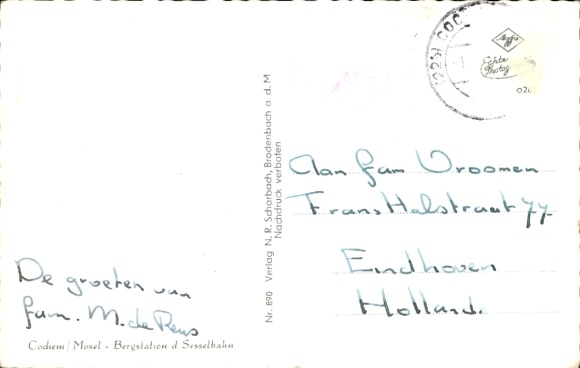 De groeten van
fam. M. de Reus
Cochem / Mosel - Bergstation d. Sesselbahn
Nr. 890 Verlag N. R. Scharbach, Brodenbach a. d. M
Nachdruck verboten
(22b) COC
Agfa
Echte
Photogr
Aan fam Vroomen
Frans Halsstraat 77
Eindhoven
Holland.